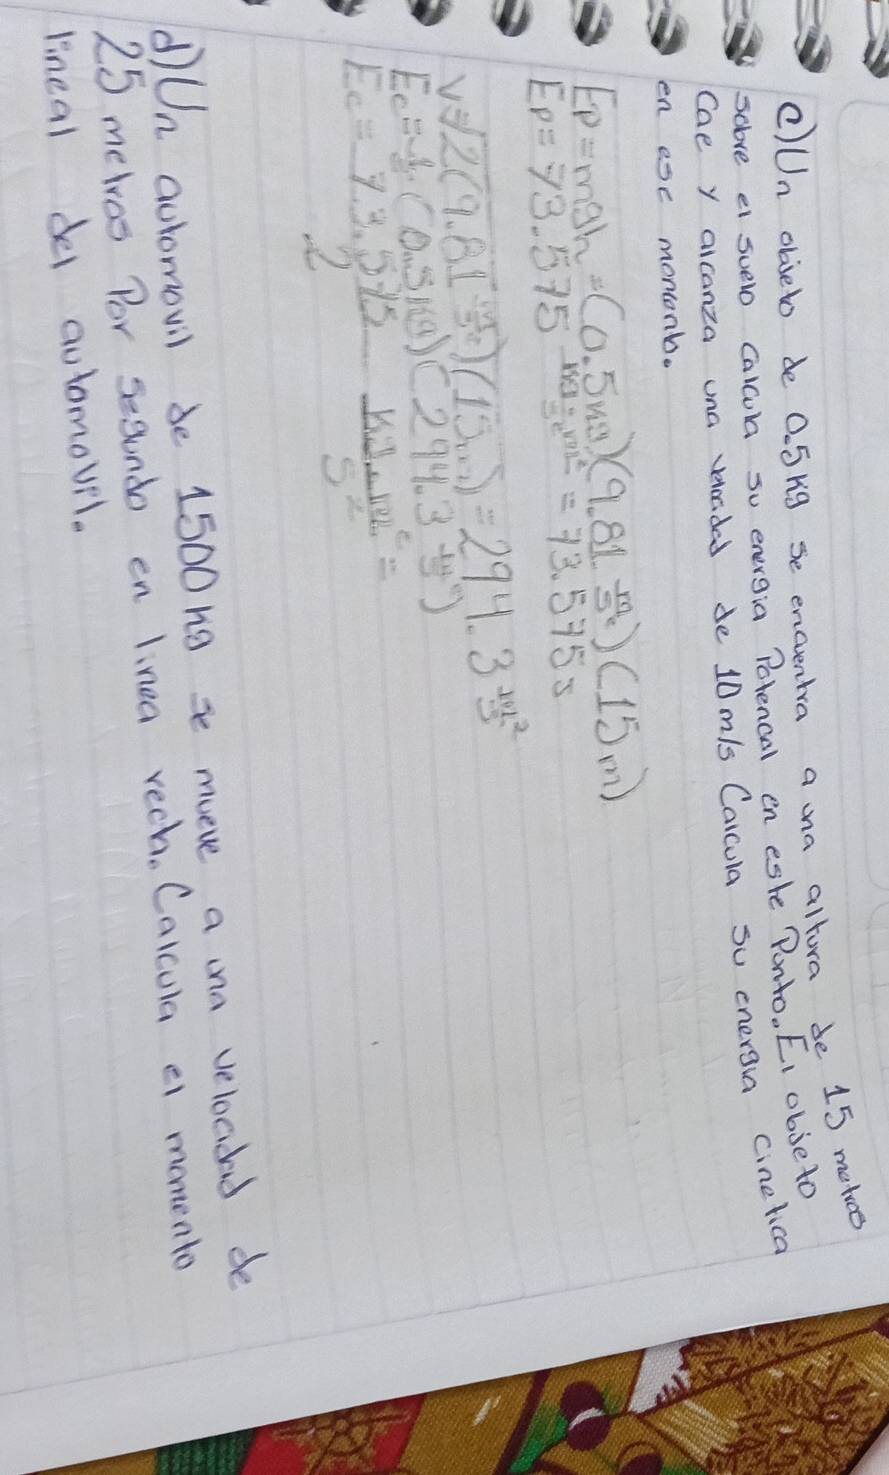 c) Un objeto de 0.5 Kg se encuentra a una altura de 15 metros
sobre el suelo calcula su energia Potencal en este Punto. El objeto
Cae y alcanza una velocidad de 10 m/s Calcula su energia cinetica
en ese momento.
Ep = mgh = (0.5 kg)(9.81 m/s²)(15 m)
Ep = 73.575 kg·m²/s² = 73.575 J
V=√2(9.81 m/s²)(15m) = 294.3 m²/s
Ec = 1/2 (0.5 kg)(294.3 m/s²)
Ec = 73.575/2 kg·m²/s² =
d) Un automovil de 1500 kg se mueve a una velocidad de
25 metros Por segundo en linea recta. Calcula el momento
lineal del automovil.